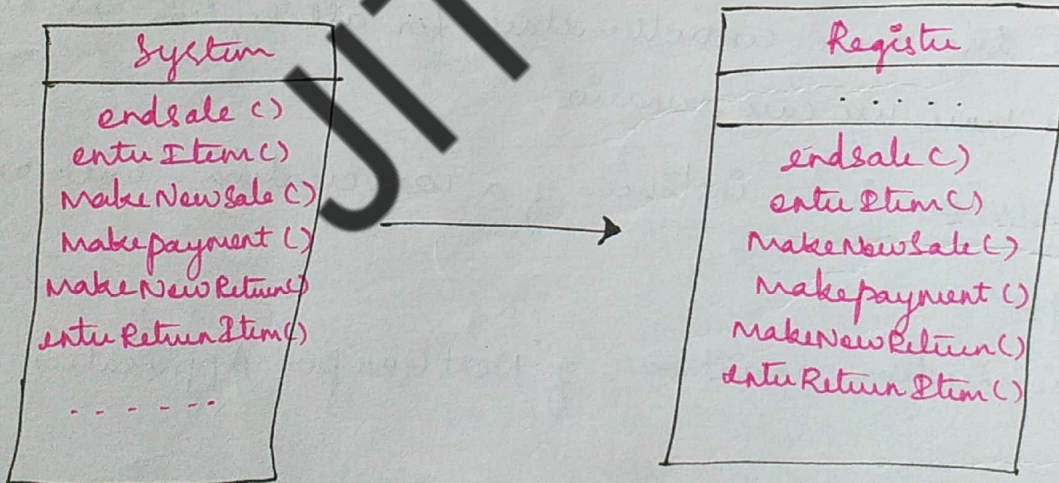 System
endsale ()
enter Item ()
Make New Sale ()
Makepayment ()
Make New Return()
enter Return Item()
- - - - - -
JIT
Register
. . . . .
endsale ()
enter Item ()
MakeNewSale ()
Makepayment ()
MakeNewReturn ()
enter Return Item ()